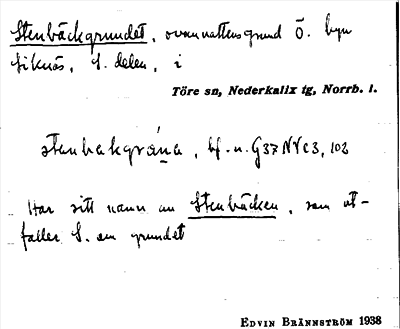 Stenbäckgrundet, ovanvattensgrund Ö. byn
Siknäs, S. delen, i
Töre sn, Nederkalix tg, Norrb. l.
stenbakgrána, bf. n. G37NVc3, 102
Har sitt namn av Stenbäcken, som ut-
faller S. om grundet
EDVIN BRÄNNSTRÖM 1938